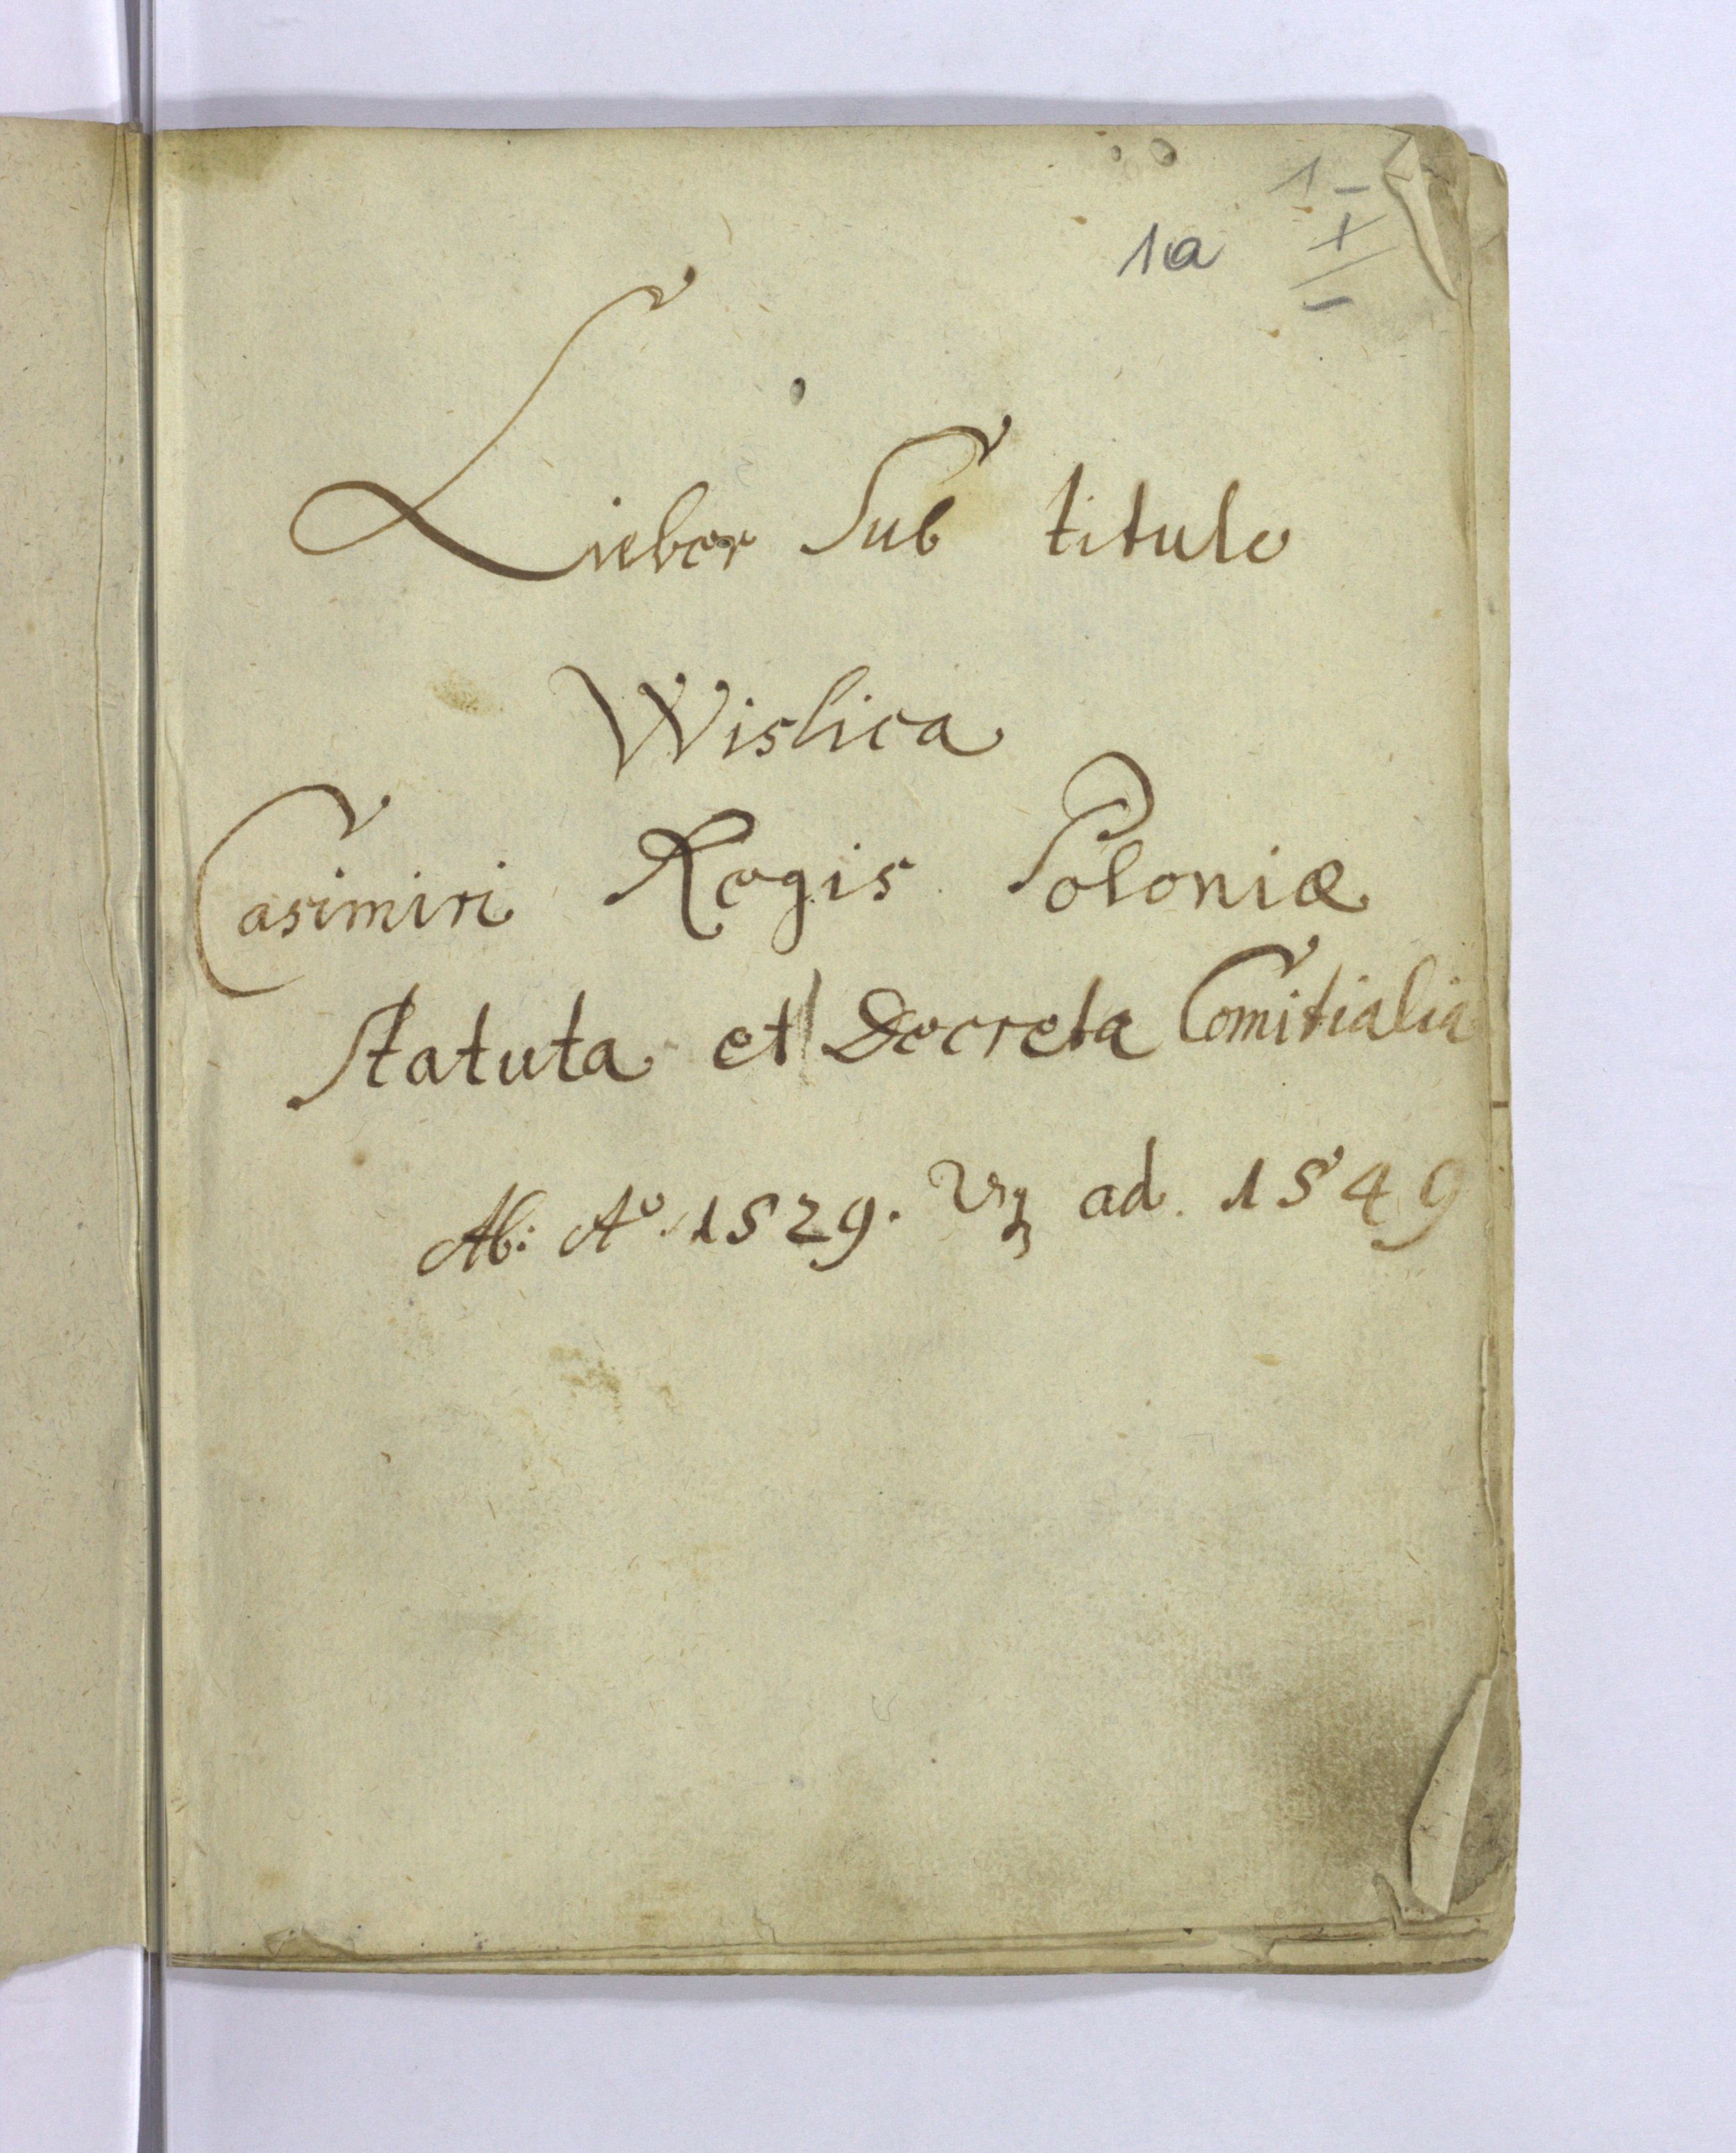 1 -
1a
Lieber Sub titulo
Wislica
Casimiri Regis Poloniæ
Statuta et Decreta Comitialia
Ab: Aº 1529. Usq ad. 1549